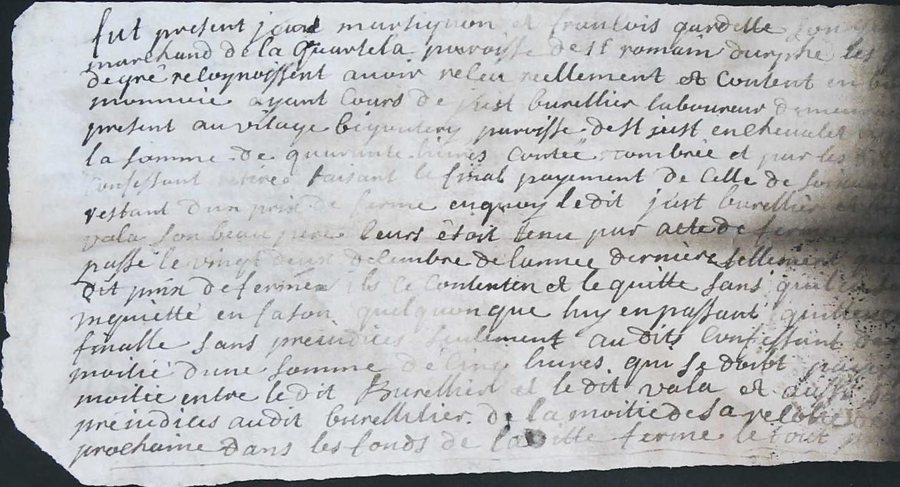 fut present jean martignon et francois gardelle son
marchand de la quartela paroisse de st romain durphe les
degré reconoissent avoir receu reellement et content en
monnoie ayant cours de just burellier laboureur
present au vilage paroisse de st just en chevalet
la somme de quarante livres contée nombrée et par les
confessant retirée faisant le final payement de celle de
restant dun prix de ferme enquoy ledit just burellier et
vala son beau pere leurs étoit tenu par acte de ferme
passé le vingt deux decembre de lannee derniere tellement que
dit prix de ferme ils ce contenten et le quitte sans quil
inquietté en fason quelquonque huy en passant quittence
finalle sans prejudices seulement audits confessant de
moitié dune somme de cinq livres qui se doibt payer
moitie entre ledit Burellier et ledit vala et aussi sans
prejudices audit burellilier de la moitié de sa recolte
prochaine dans les fonds de laditte ferme le tout